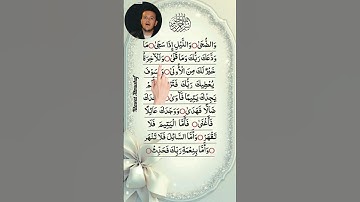 بسم الله الرحمن الرحيم
وَالضُّحَىٰ وَالَّيْلِ إِذَا سَجَىٰ مَا
وَدَّعَكَ رَبُّكَ وَمَا قَلَىٰ وَلَلْآخِرَةُ
خَيْرٌ لَّكَ مِنَ الْأُولَىٰ وَلَسَوْفَ
يُعْطِيكَ رَبُّكَ
يَجِدْكَ يَتِيمًا فَآوَىٰ
ضَالًّا فَهَدَىٰ وَوَجَدَكَ عَائِلًا
فَأَغْنَىٰ فَأَمَّا الْيَتِيمَ فَلَا
تَقْهَرْ وَأَمَّا السَّائِلَ فَلَا تَنْهَرْ
وَأَمَّا بِنِعْمَةِ رَبِّكَ فَحَدِّثْ